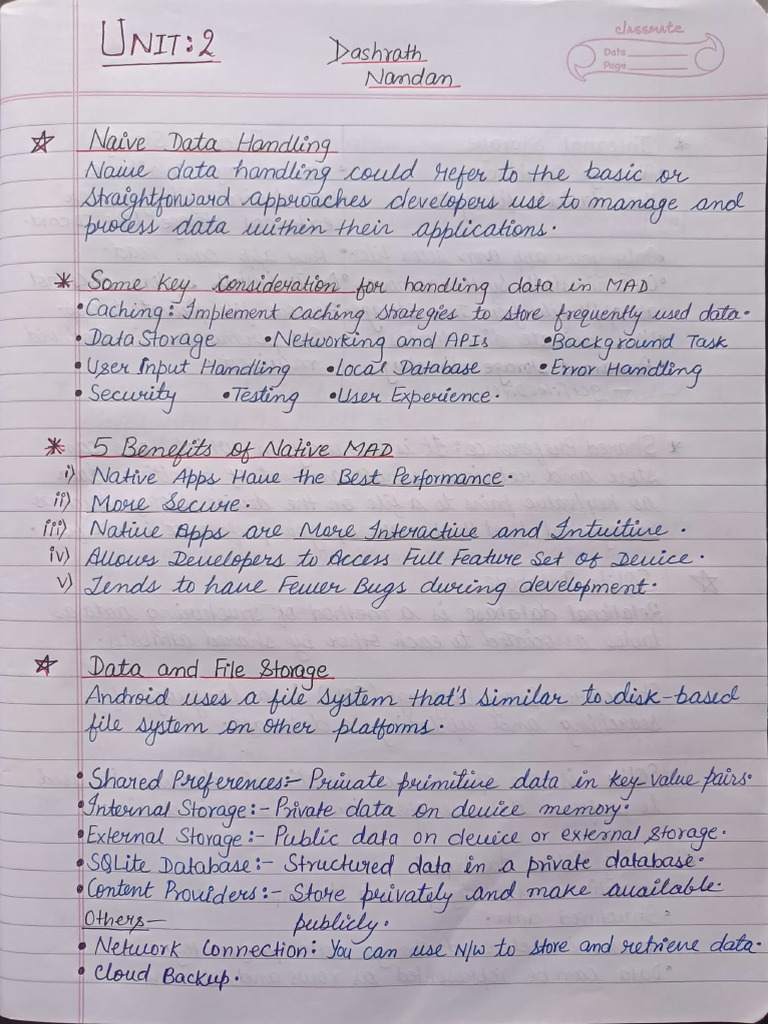 UNIT:2
Dashrath
Nandan
classmate
Date
Page
☆ Naive Data Handling
Naive data handling could refer to the basic or
straightforward approaches developers use to manage and
process data within their applications.
* Some Key Consideration for handling data in MAD
• Caching: Implement caching strategies to store frequently used data.
• Data Storage • Networking and APIs • Background Task
• User Input Handling • Local Database • Error Handling
• Security • Testing • User Experience.
* 5 Benefits of Native MAD
i) Native Apps Have the Best Performance.
ii) More Secure.
iii) Native Apps are More Interactive and Intuitive.
iv) Allows Developers to Access Full Feature Set Of Device.
v) Tends to have Fewer Bugs during development.
☆ Data and File Storage
Android uses a file system that's similar to disk-based
file system on other platforms.
• Shared Preferences:- Private primitive data in key-value pairs.
• Internal Storage:- Private data on device memory.
• External Storage:- Public data on device or external storage.
• SQLite Database:- Structured data in a private database.
• Content Providers:- Store privately and make available
publicly.
Others-
• Network Connection: You can use N/W to store and retrieve data.
• Cloud Backup.